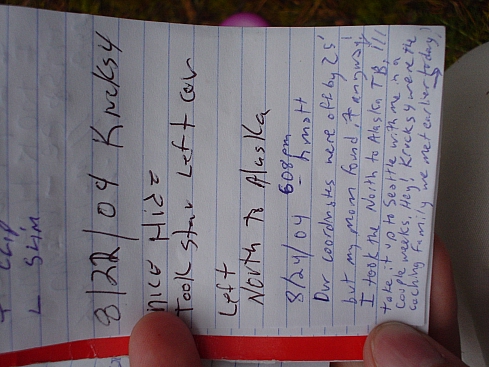 + CHIP
L SLIM
8/22/04 Krcksy
NICE Hide
Took Star Left car
Left
North to Alaska
8/24/04 608pm
- hmatt
Our coordinates were off by 25'
but my mom found it anyway!
I took the North to Alaska TB, I'll
take it up to Seattle with me in a
couple weeks. Hey! Krcksy were the
caching family we met earlier today!